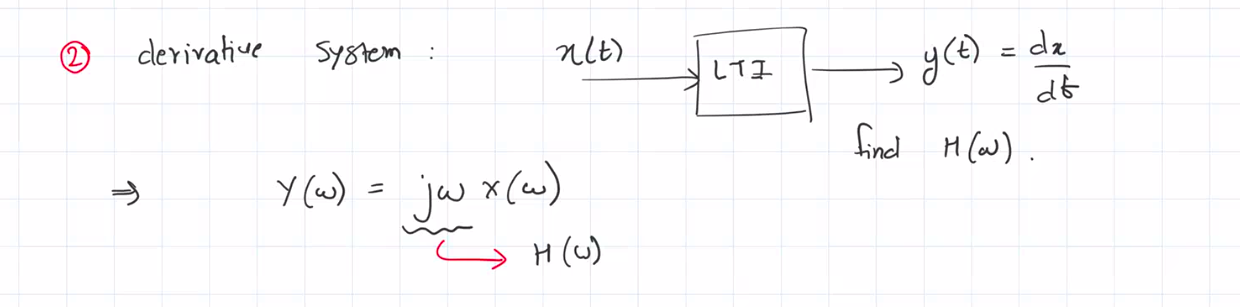 ② derivative system : x(t) → LTI → y(t) = dx/dt
find H(ω) .
⇒ Y(ω) = jω X(ω)
→ H(ω)